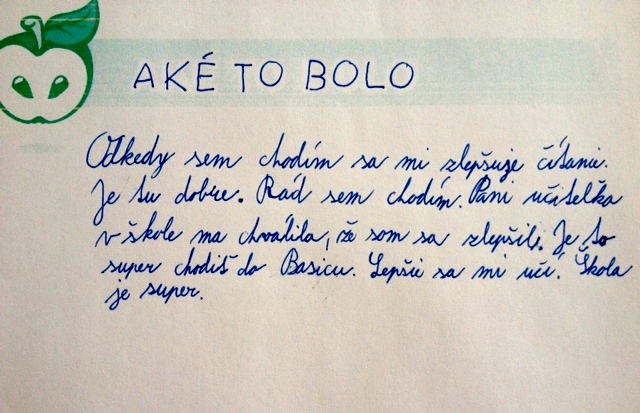 AKÉ TO BOLO
Odkedy sem chodím sa mi zlepšuje čítanie.
Je tu dobre. Rád sem chodím. Pani učitelka
v škole ma chválila, že som sa zlepšil. Je to
super chodiť do Basicu. Lepšie sa mi učí. Škola
je super.